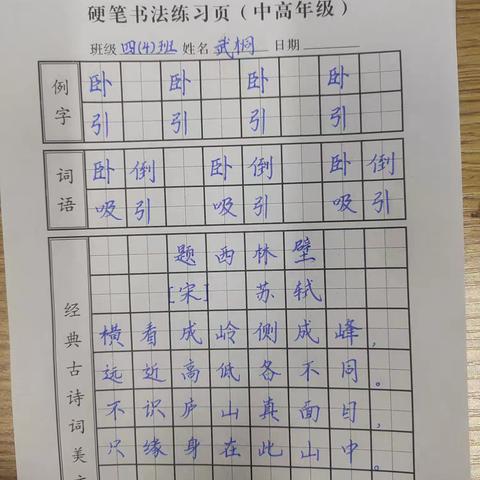 硬笔书法练习页(中高年级)
班级 四(4)班 姓名 武桐 日期
例字
卧 卧 卧 卧
引 引 引 引
词语
卧倒 卧倒 卧倒
吸引 吸引 吸引
经典古诗词美文
题西林壁
[宋] 苏轼
横看成岭侧成峰,
远近高低各不同。
不识庐山真面目,
只缘身在此山中。